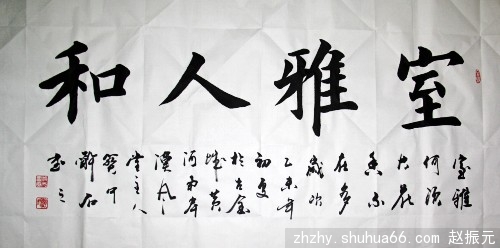 室雅人和
室雅
何須
大花
香不
在多
歲次
乙未年
初夏
於古金
城黄
河南岸
漢風
堂主人
石
書之
zhzhy.shuhua66.com 赵振元